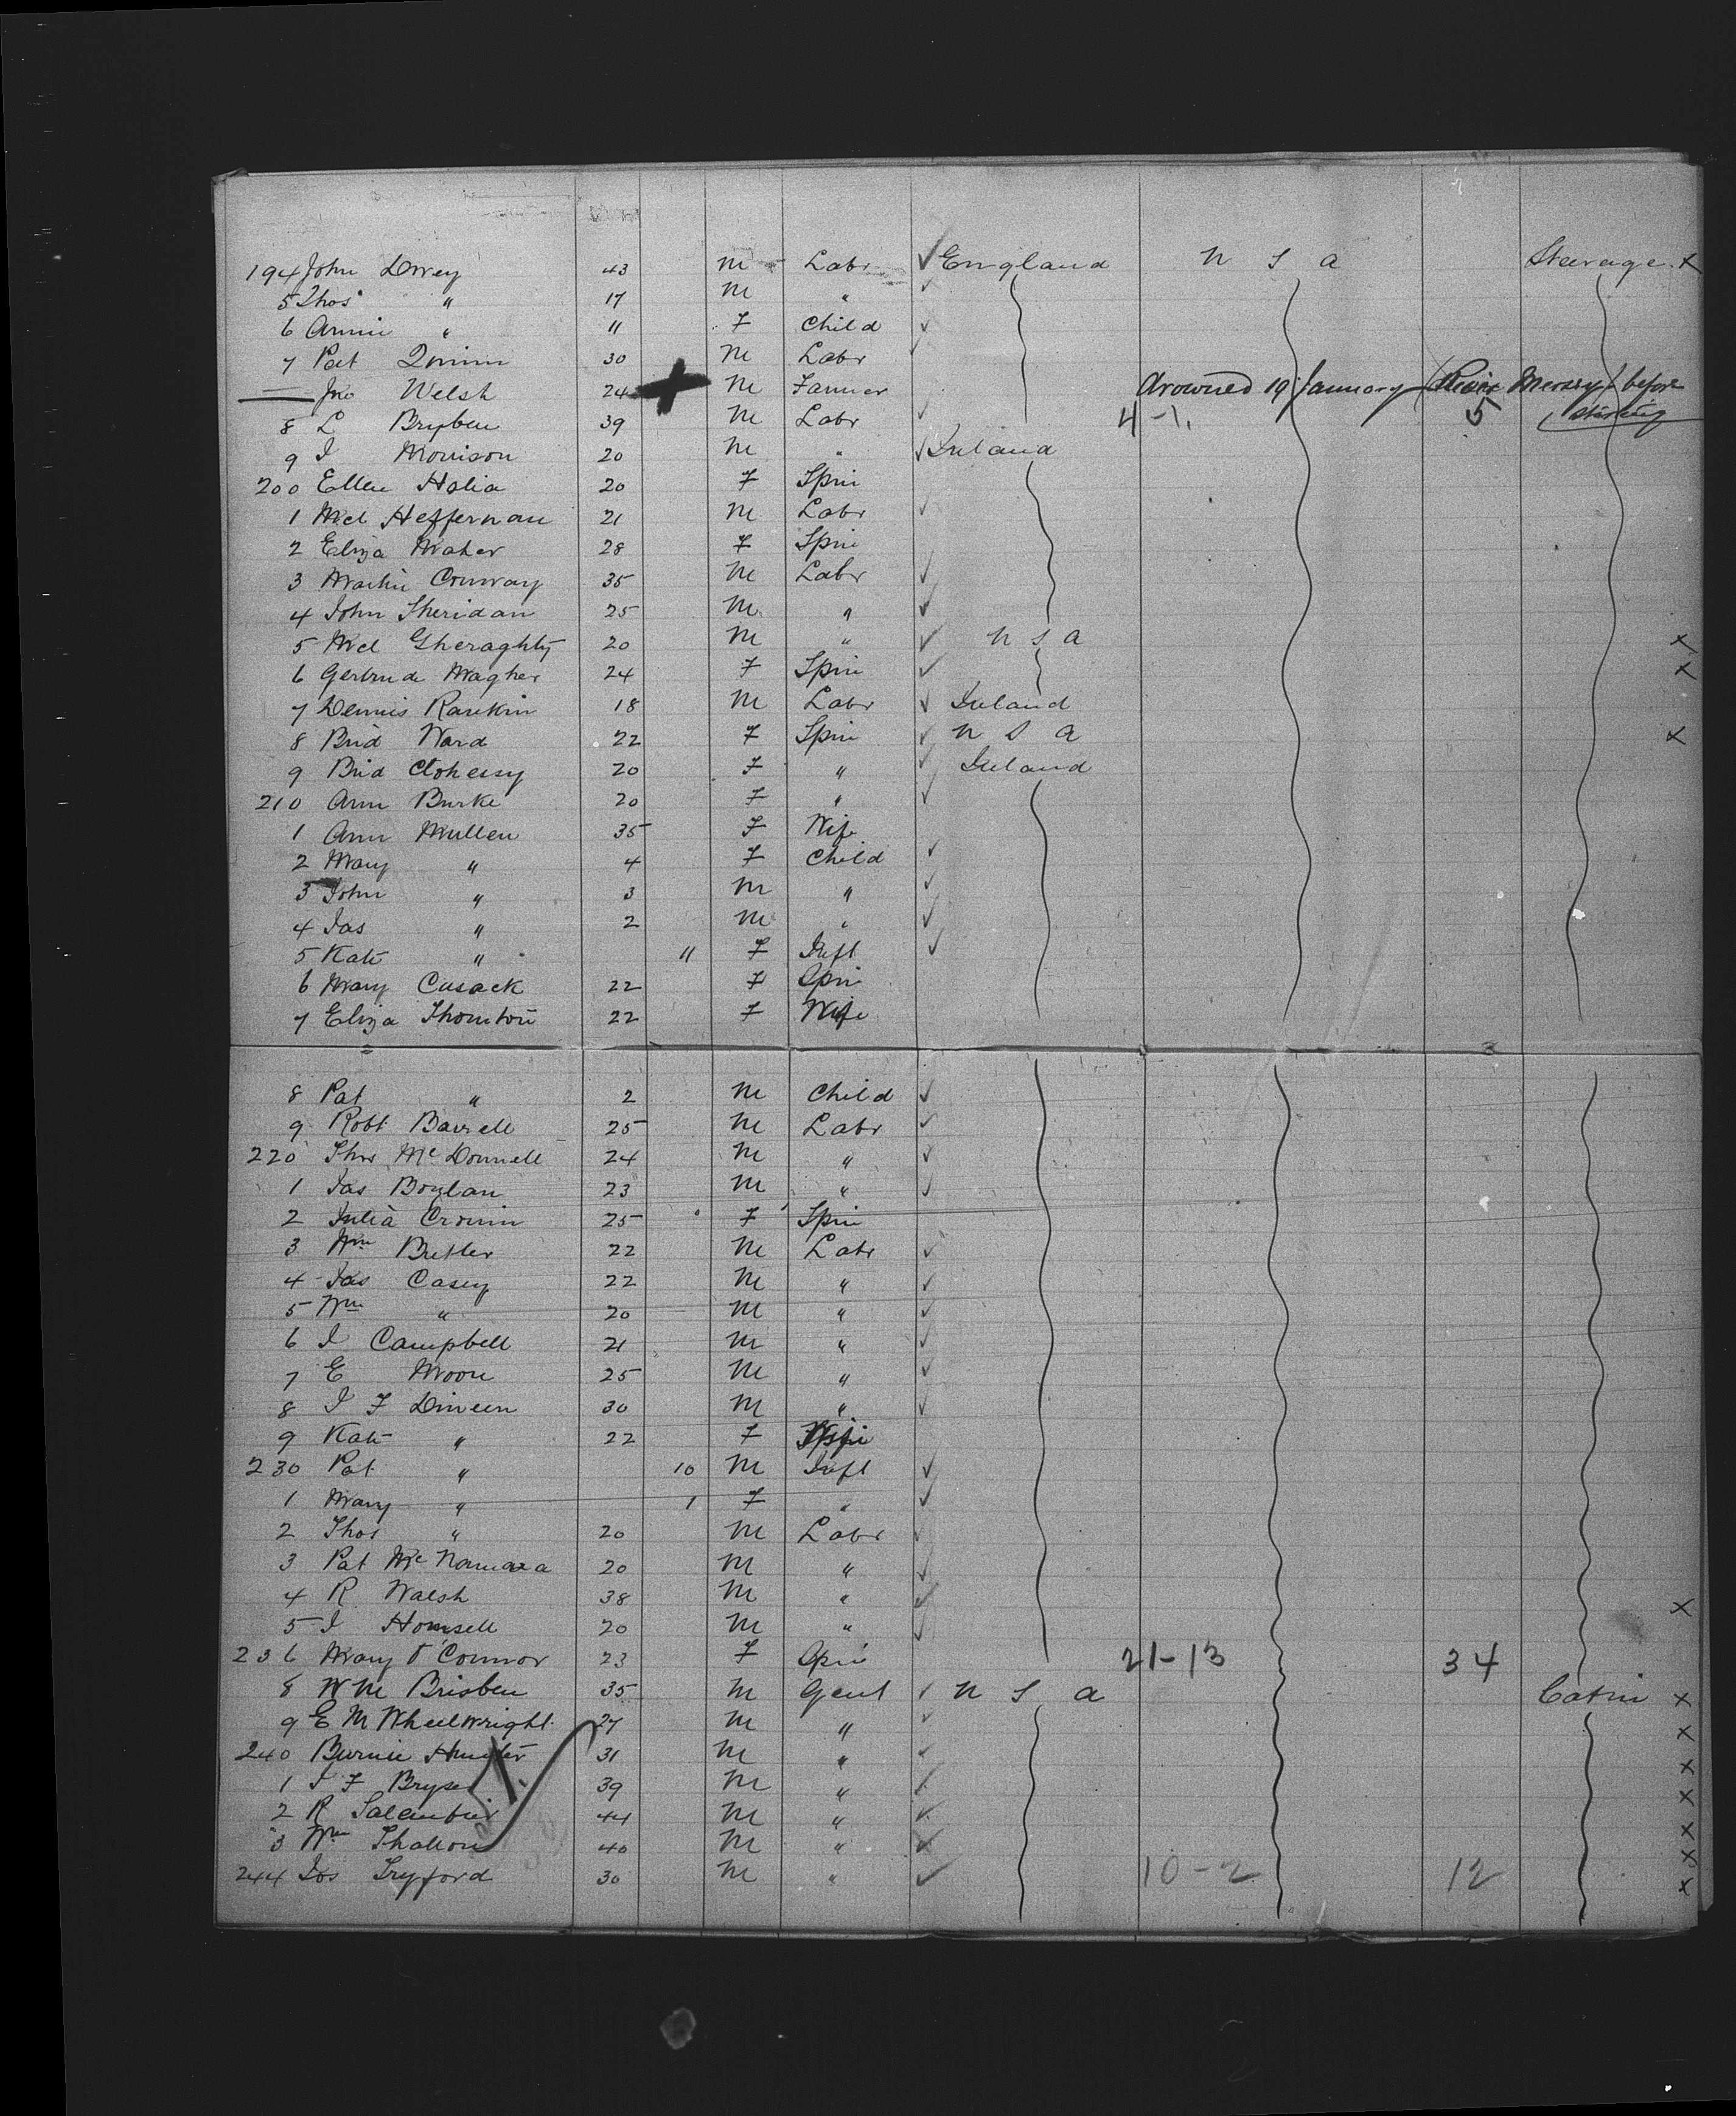 194 John Dwey 43 M Labr ✓ England U S A Steerage x
5 Thos " 17 M " ✓
6 Annie " 11 F Child ✓
7 Pat Quinn 30 M Labr ✓
— Jno Welsh 24 M Farmer drowned 19 January River Mersey before
8 L Bryben 39 M Labr ✓ 4-1. 5 starting
9 J Morrison 20 M " ✓ Ireland
200 Ellen Halia 20 F Spin
1 Mcl Heffernan 21 M Labr ✓
2 Eliza Maher 28 F Spin
3 Martin Conway 35 M Labr ✓
4 John Sheridan 25 M " ✓
5 Mcl Gheraghty 20 M " ✓ U S A x
6 Gertrude Magher 24 F Spin ✓ x
7 Dennis Rankin 18 M Labr ✓ Ireland
8 Brid Ward 22 F Spin ✓ U S A x
9 Brid Clohessy 20 F " ✓ Ireland
210 Ann Burke 20 F " ✓
1 Ann Mullen 35 F Wife
2 Mary " 4 F Child ✓
3 John " 3 M " ✓
4 Jas " 2 M " ✓
5 Kate " 11 F Inft ✓
6 Mary Cusack 22 F Spin
7 Eliza Thornton 22 F Wife
8 Pat " 2 M Child ✓
9 Robt Barrell 25 M Labr ✓
220 Thos McDonnell 24 M " ✓
1 Jas Boylan 23 M " ✓
2 Julia Cronin 25 F Spin
3 Wm Butler 22 M Labr ✓
4 Jas Casey 22 M " ✓
5 Wm " 20 M " ✓
6 J Campbell 21 M " ✓
7 E Moore 25 M " ✓
8 J F Dineen 30 M " ✓
9 Kate " 22 F Wife
230 Pat " 10 M Inft ✓
1 Mary " 1 F " ✓
2 Thos " 20 M Labr ✓
3 Pat McNamara 20 M " ✓
4 R Walsh 38 M " ✓ x
5 J Homsell 20 M " ✓
236 Mary O'Connor 23 F Spin 21-13 34
8 W M Brisben 35 M Gent ✓ U S A Cabin x
9 E M Wheelwright 27 M " ✓ x
240 Burnie Hunter 31 M " ✓ x
1 J F Bryse 39 M " ✓ x
2 R Salembier 44 M " ✓ x
3 Wm Shallow 40 M " ✓ x
244 Jos Tryford 30 M " ✓ 10-2 12 x